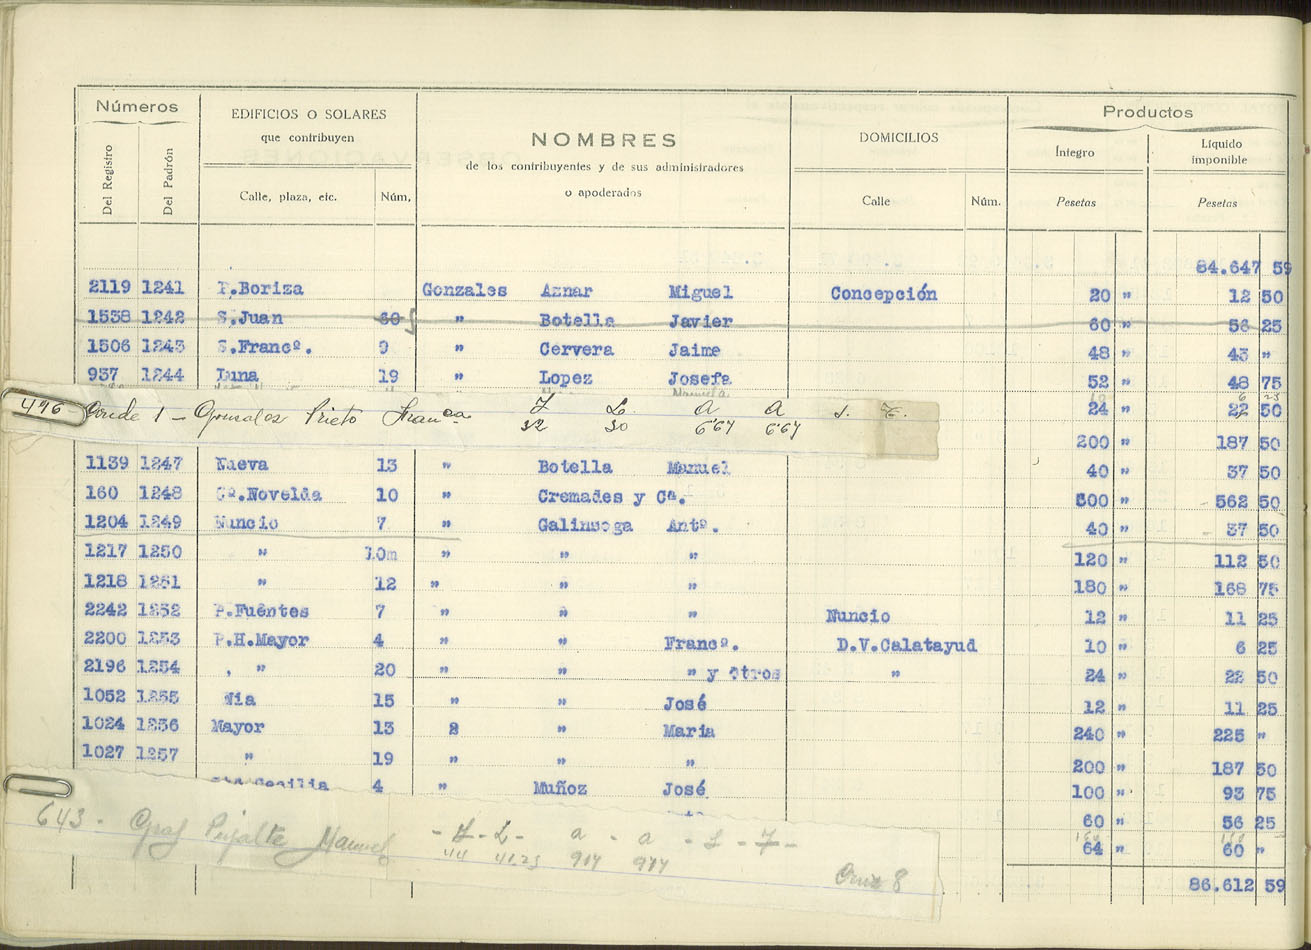 Números EDIFICIOS O SOLARES que contribuyen NOMBRES de los contribuyentes y de sus administradores o apoderados DOMICILIOS Productos
Del Registro Del Padrón Calle, plaza, etc. Núm, Calle Núm. Íntegro Pesetas Líquido imponible Pesetas
84.647 59
2119 1241 P.Boriza Gonzales Aznar Miguel Concepción 20 " 12 50
1538 1242 S.Juan 60 " Botella Javier 60 " 56 25
1506 1243 S.Francº. 9 " Cervera Jaime 48 " 43 "
937 1244 Luna 19 " Lopez Josefa 52 " 48 75
Manuela
496 Conde 1 - Gonzales Prieto Franca 7 L A A 24 " 22 50
32 30 6'67 6'67
200 " 187 50
1139 1247 Nueva 13 " Botella Manuel 40 " 37 50
160 1248 Cª.Novelda 10 " Cremades y Cª. 600 " 562 50
1204 1249 Nuncio 7 " Galinsoga Antº. 40 " 37 50
1217 1250 " 10m " " " 120 " 112 50
1218 1251 " 12 " " " 180 " 168 75
2242 1252 P.Fuentes 7 " " " Nuncio 12 " 11 25
2200 1253 P.H.Mayor 4 " " Francº. D.V.Calatayud 10 " 6 25
2196 1254 , " 20 " " " y Otros " 24 " 22 50
1052 1255 Mia 15 " " José 12 " 11 25
1024 1256 Mayor 13 2 " Maria 240 " 225 "
1027 1257 " 19 " " " 200 " 187 50
Stª Cecilia 4 " Muñoz José 100 " 93 75
60 " 56 25
643 - Graf Pujalte Manuel - 7 - L - a - a - 1 - 7 - 64 " 60 "
44 41.25 917 917 Cruz 8
86.612 59